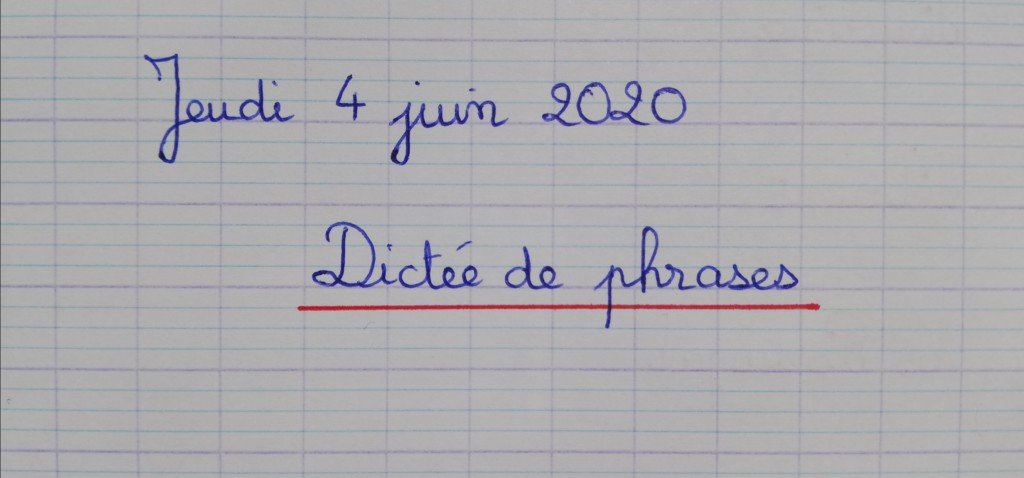 Jeudi 4 juin 2020
Dictée de phrases